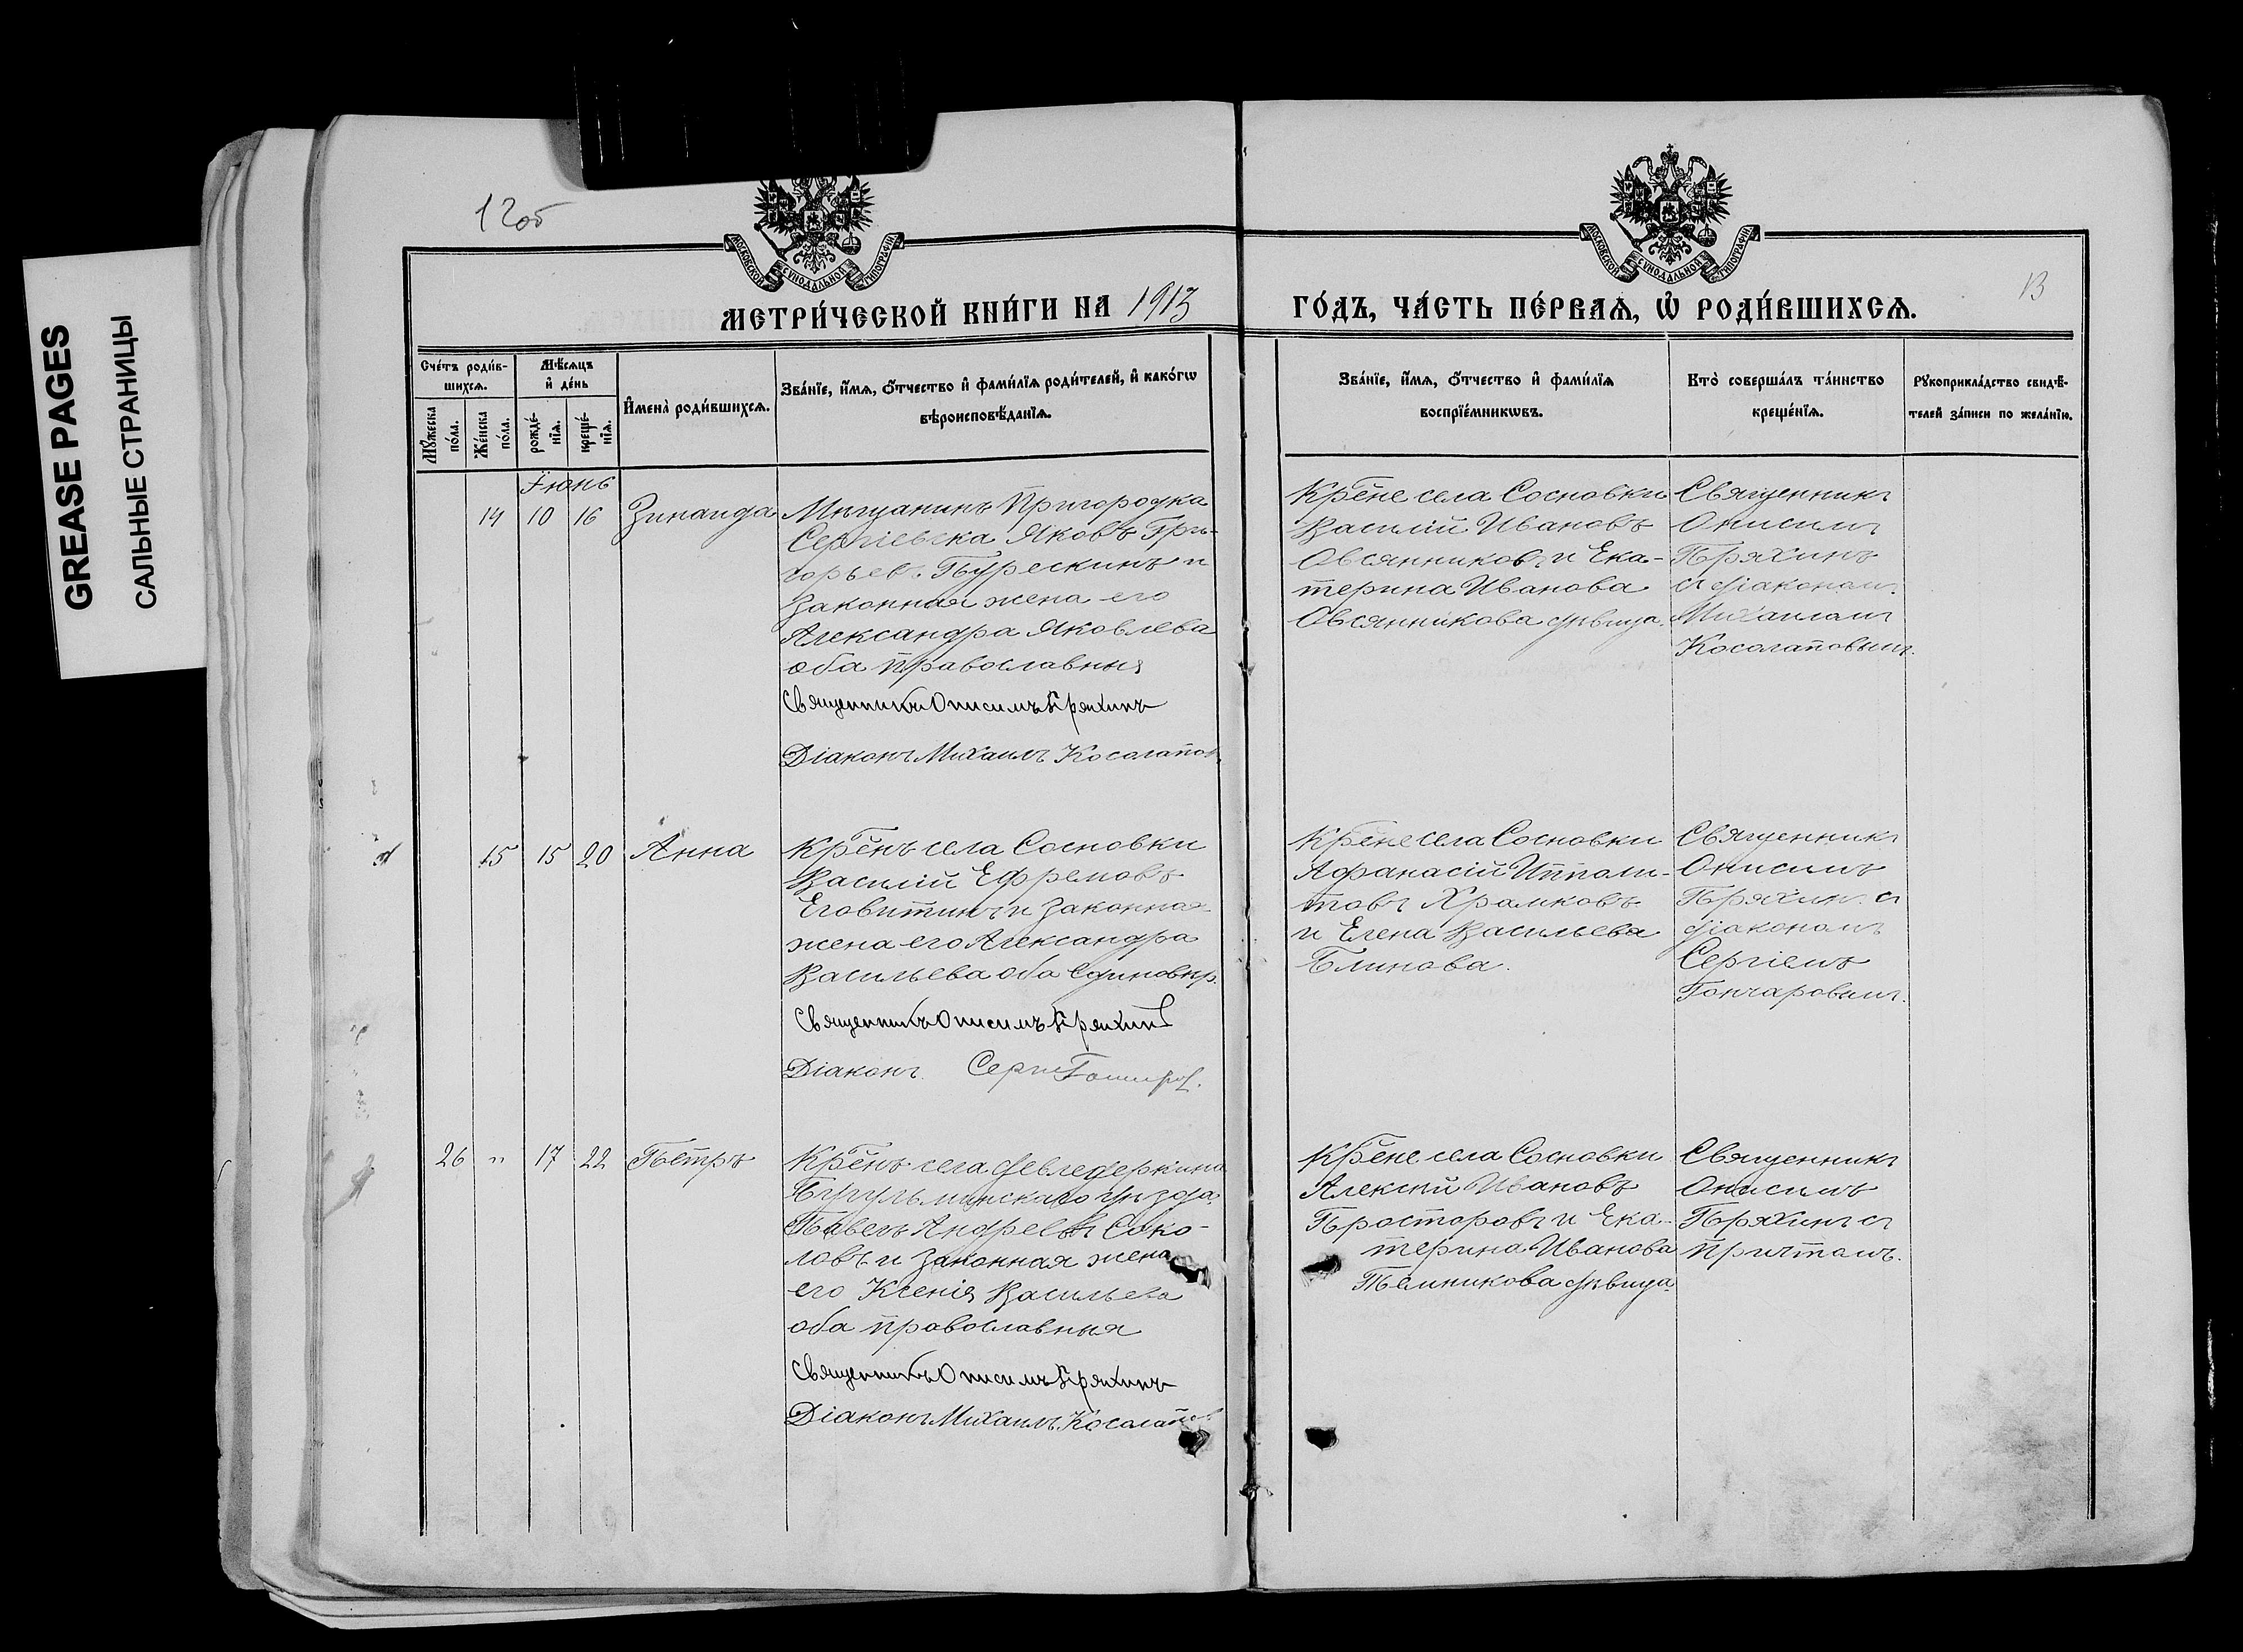 GREASE PAGES
САЛЬНЫЕ СТРАНИЦЫ
12об
13
МОСКОВСКОЙ СѴНОДАЛЬНОЙ ТИПОГРАФІИ
МОСКОВСКОЙ СѴНОДАЛЬНОЙ ТИПОГРАФІИ
МЕТРИ́ЧЕСКОЙ КНИ́ГИ НА 1913 ГО́ДЪ, ЧА́СТЬ ПЕ́РВАѦ, Ѡ҆ РОДИ́ВШИХСѦ.
Сче́тъ роди́в-
шихсѧ.
Мꙋ́жеска по́ла.
Же́нска по́ла.
Мѣ́сѧцъ
и҆ де́нь
рожде́-
нїѧ.
креще́-
нїѧ.
И҆мена̀ роди́вшихсѧ.
Зва́нїе, и҆́мѧ, ѻ҆́тчество и҆ фами́лїѧ роди́телей, и҆ како́гѡ
вѣроисповѣ́данїѧ.
Зва́нїе, и҆́мѧ, ѻ҆́тчество и҆ фами́лїѧ
воспрїе́мникѡвъ.
Кто̀ соверша́лъ та́инство
креще́нїѧ.
Рꙋкоприкла́дство свидѣ́-
телей за́писи по жела́нїю.
Іюнь
14 10 16 Зинаида
Мѣщанинъ Пригородка
Сергіевска Яковъ Гри-
горьев. Пурескинъ и
законная жена его
Александра Яковлева
оба православныя
Священникъ Онисимъ Пряхинъ
Діаконъ Михаилъ Косолапов
Кр̃не села Сосновки
Василій Ивановъ
Овсянниковъ и Ека-
терина Иванова
Овсянникова дѣвица.
Священникъ
Онисимъ
Пряхинъ
съ діаконом.
Михаиломъ
Косолаповымъ.
15 15 20 Анна
Кр̃нъ села Сосновки
Василій Ефремовъ
Еговитинъ и законная
жена его Александра
Васильева оба единовѣр.
Священникъ Онисимъ Пряхинъ
Діаконъ Серги
Кр̃не села Сосновки
Афанасій Иппали-
товъ Храмковъ
и Елена Васильева
Блинова.
Священникъ
Онисимъ
Пряхин. съ
діакономъ
Сергіемъ
Гончаровымъ.
26 " 17 22 Петръ
Кр̃нъ села
Бугульминскаго уѣзда
Павелъ Андреевъ Соко-
ловъ и законная жена
его Ксенія Васильева
оба православныя
Священникъ Онисимъ Пряхинъ
Діаконъ Михаилъ Косолапов
Кр̃не села Сосновки
Алексѣй Ивановъ
Просторовъ и Ека-
терина Иванова
Темникова дѣвица.
Священникъ
Онисимъ
Пряхинъ съ
притомъ.